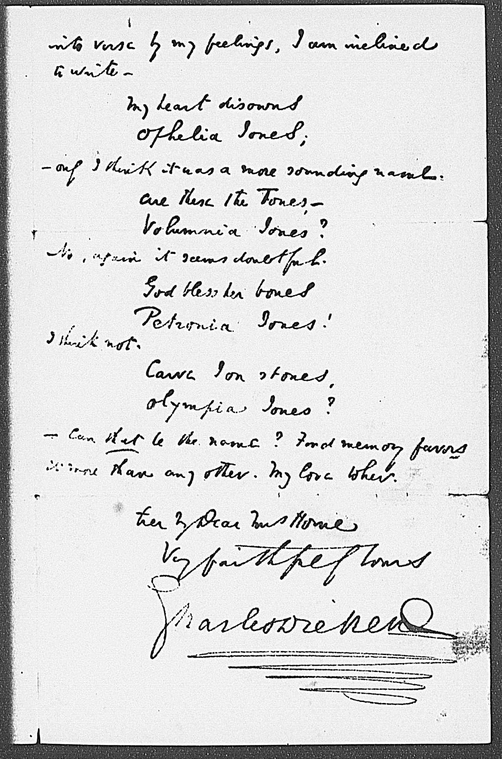 into verse by my feelings, I am inclined
to write –
My heart disowns
Ophelia Jones;
– only I think it was a more sounding name.
Are these the Tones –
Volumnia Jones?
No, again it seems doubtful.
God bless her bones
Petronia Jones!
I think not.
Carve I on stones,
Olympia Jones?
– Can that be the name? Fond memory favors
it more than any other. My love to her.
Ever My Dear Mrs Horne
Very faithfully Yours
Charles Dickens